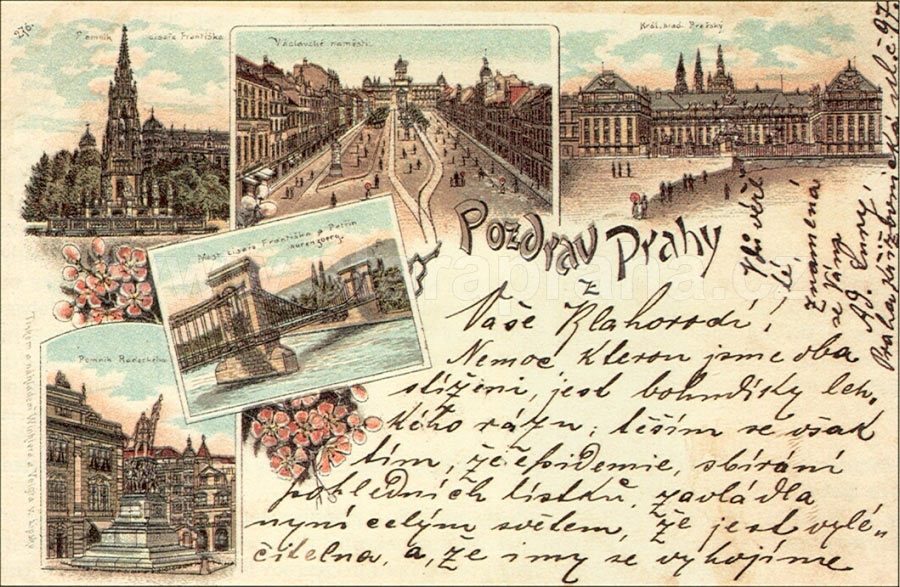 276.
Pomník císaře Františka
Václavské náměstí.
Král. hrad Pražský
Most císaře Františka a Petřín
Pomník Radeckého
Pozdrav
z Prahy
Vaše Blahorodí!
Nemoc kterou jsme oba
stíženi, jest bohudíky leh„
kého rázu; těším se však
tím, že epidemie, sbírání
pohledních lístků, zavládla
nyní celým světem, že jest vylé„
čitelna, a, že i my se vyhojíme
znamená
se Vám
Ad.
Praha, Křižovnická ul. č 97.